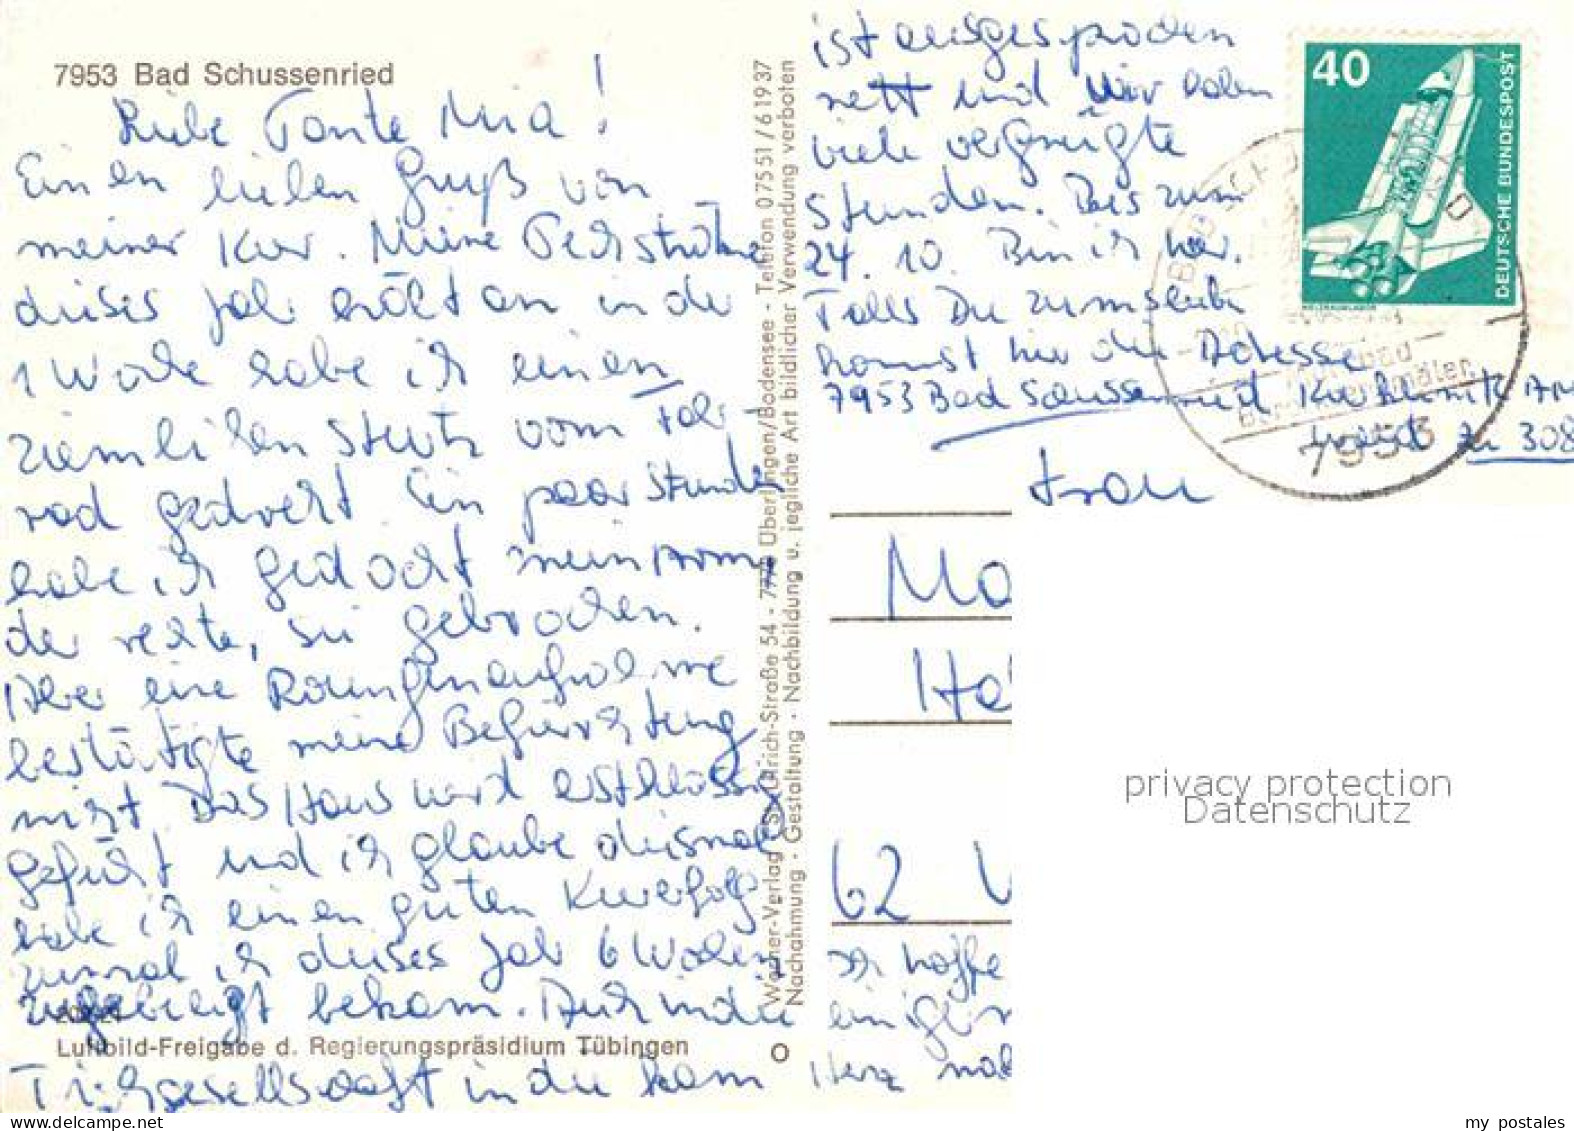 7953 Bad Schussenried
Liebe Tante Mia!
Einen lieben Gruß von
meiner Kur. Meine Pechsträhne
dieses Jahr hält an in der
1 Woche habe ich einen
ziemlichen Sturz vom Fahr
rad gedreht. Ein paar Stunden
habe ich gedacht mein Arm
der rechte, sei gebrochen.
Aber eine Röntgenaufnahme
bestätigte meine Befürchtung
nicht. Das Haus wird erstklassig
geführt und ich glaube diesmal
habe ich einen guten Kurerfolg
zumal ich dieses Jahr 6 Wochen
bekam. Auch in der
Luftbild-Freigabe d. Regierungspräsidium Tübingen
Tischgesellschaft in die kam
Werner-Verlag, St.-Ulrich-Straße 54 - 7770 Überlingen/Bodensee - Telefon 07551/61937
Nachahmung · Gestaltung · Nachbildung u. jegliche Art bildlicher Verwendung verboten
ist ausgesprochen
nett und wir haben
viele vergnügte
Stunden. Bis zum
24. 10. Bin ich hier.
Falls Du zum schreiben
kommst hier die Adresse
7953 Bad Schussenried Kurklinik
Zi 308
40
DEUTSCHE BUNDESPOST
WELTRAUMLABOR
7953
Frau
Ma
Ha
62 W
Ich hoffe
einiger
Herz
privacy protection
Datenschutz
my postales